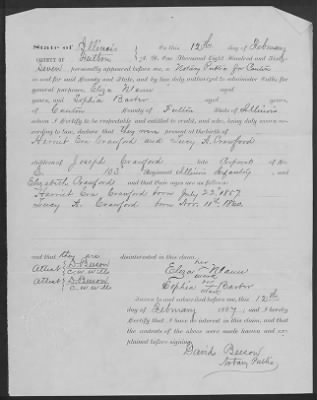 State of Illinois On this 12th day of February
County of Fulton A. D. One Thousand Eight Hundred and Sixty
Seven personally appeared before me, a Notary Public for Canton
in and for said County and State, and by law duly authorized to administer oaths for
general purposes, Eliza Mann aged
years, and Sophia Barber aged years,
of Canton County of Fulton State of Illinois
whom I Certify to be respectable and entitled to credit, and who, being duly sworn
according to law, declare that they were present at the birth of
Harriet Eva Crawford and Lucy A. Crawford
children of Joseph Crawford late Corporal of Co
103 Regiment Illinois Infantry and
Elizabeth Crawford and that their ages are as follows:
Harriet Eva Crawford born July 22 1857
Lucy A. Crawford born Nov. 11th 1860
and that they are disinterested in this claim.
Attest D. Beeson her
C. W. Wills Eliza Mann
mark
Attest D. Beeson her
C. W. Wills Sophia Barber
mark
Sworn to and subscribed before me, this 12th
day of February 1867, and I hereby
Certify that I have no interest in this claim, and that
the contents of the above were made known and ex-
plained before signing.
David Beeson
Notary Public